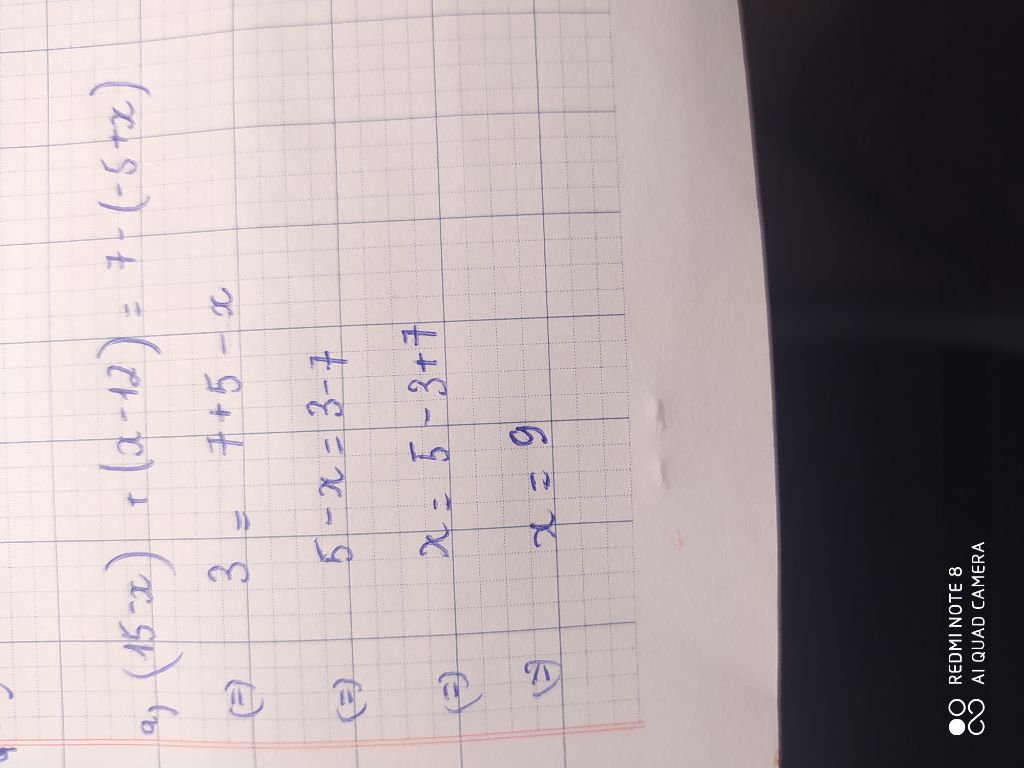 a) (15-x) + (x-12) = 7 - (-5+x)
(=) 3 = 7+5 -x
(=) 5-x = 3-7
(=) x = 5 -3+7
(=) x = 9
REDMI NOTE 8
AI QUAD CAMERA